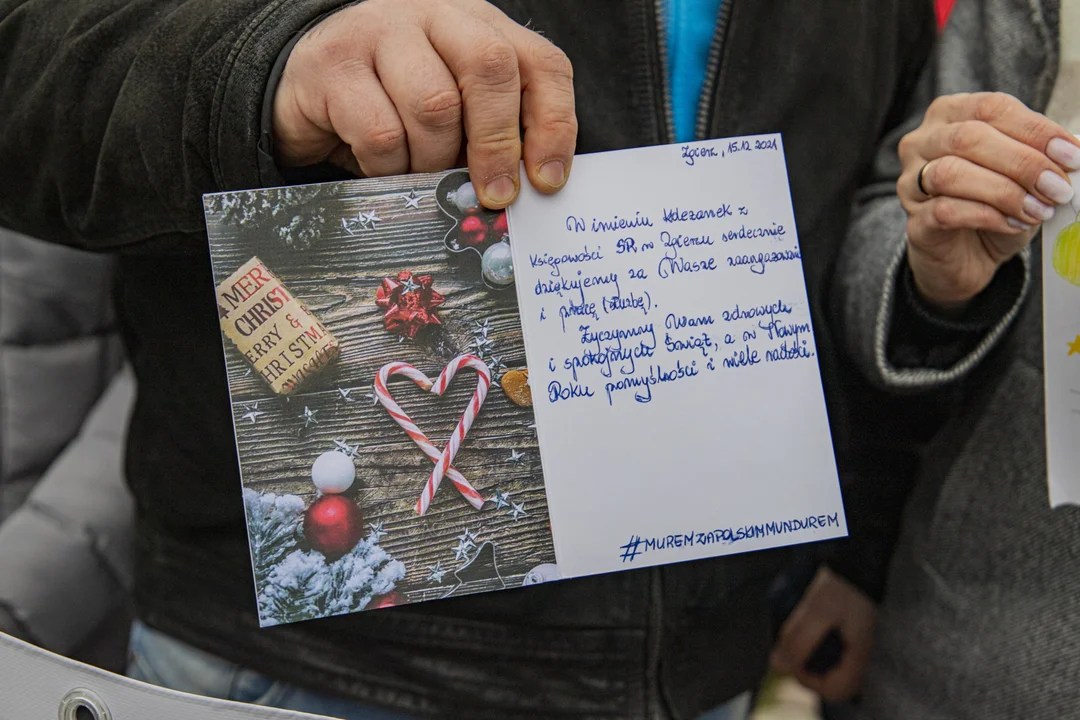 MER
CHRIST
ERRY &
HRISTM
Zgierz, 15.12.2021
W imieniu Koleżanek z
Księgowości SR w Zgierzu serdecznie
dziękujemy za Wasze zaangażowanie
i pracę (służbę).
Życzymy Wam zdrowych
i spokojnych Świąt, a w Nowym
Roku pomyślności i wiele radości.
#MUREMZAPOLSKIMMUNDUREM